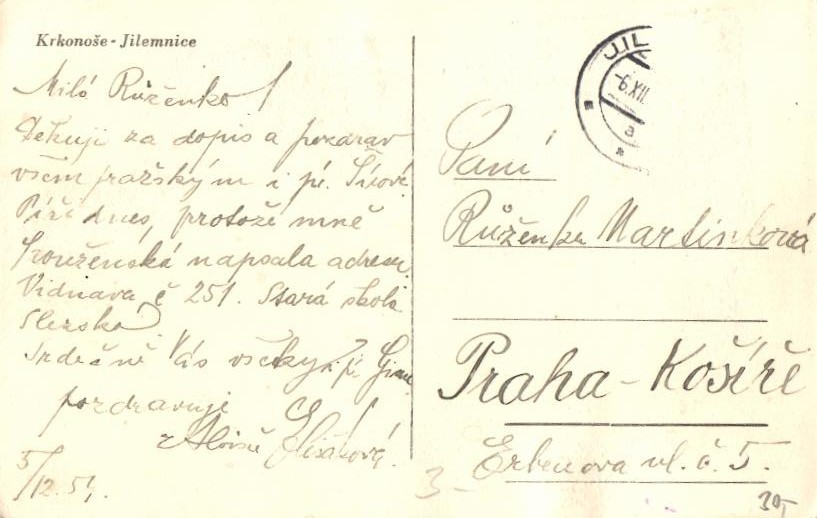 Krkonoše - Jilemnice
Milá Růženko!
Děkuji za dopis a pozdrav
všem pražským i pí.
Píši dnes, protože mně
napsala adresu
Vidnava č 251. Stará škola
Slezsko
Srdečně Vás všecky i pí.
pozdravuje
5/12.54.
JIL
-6.XII.
a
Paní
Růženka Martínková
Praha - Košíře
Erbenova ul. č. 5.
3-